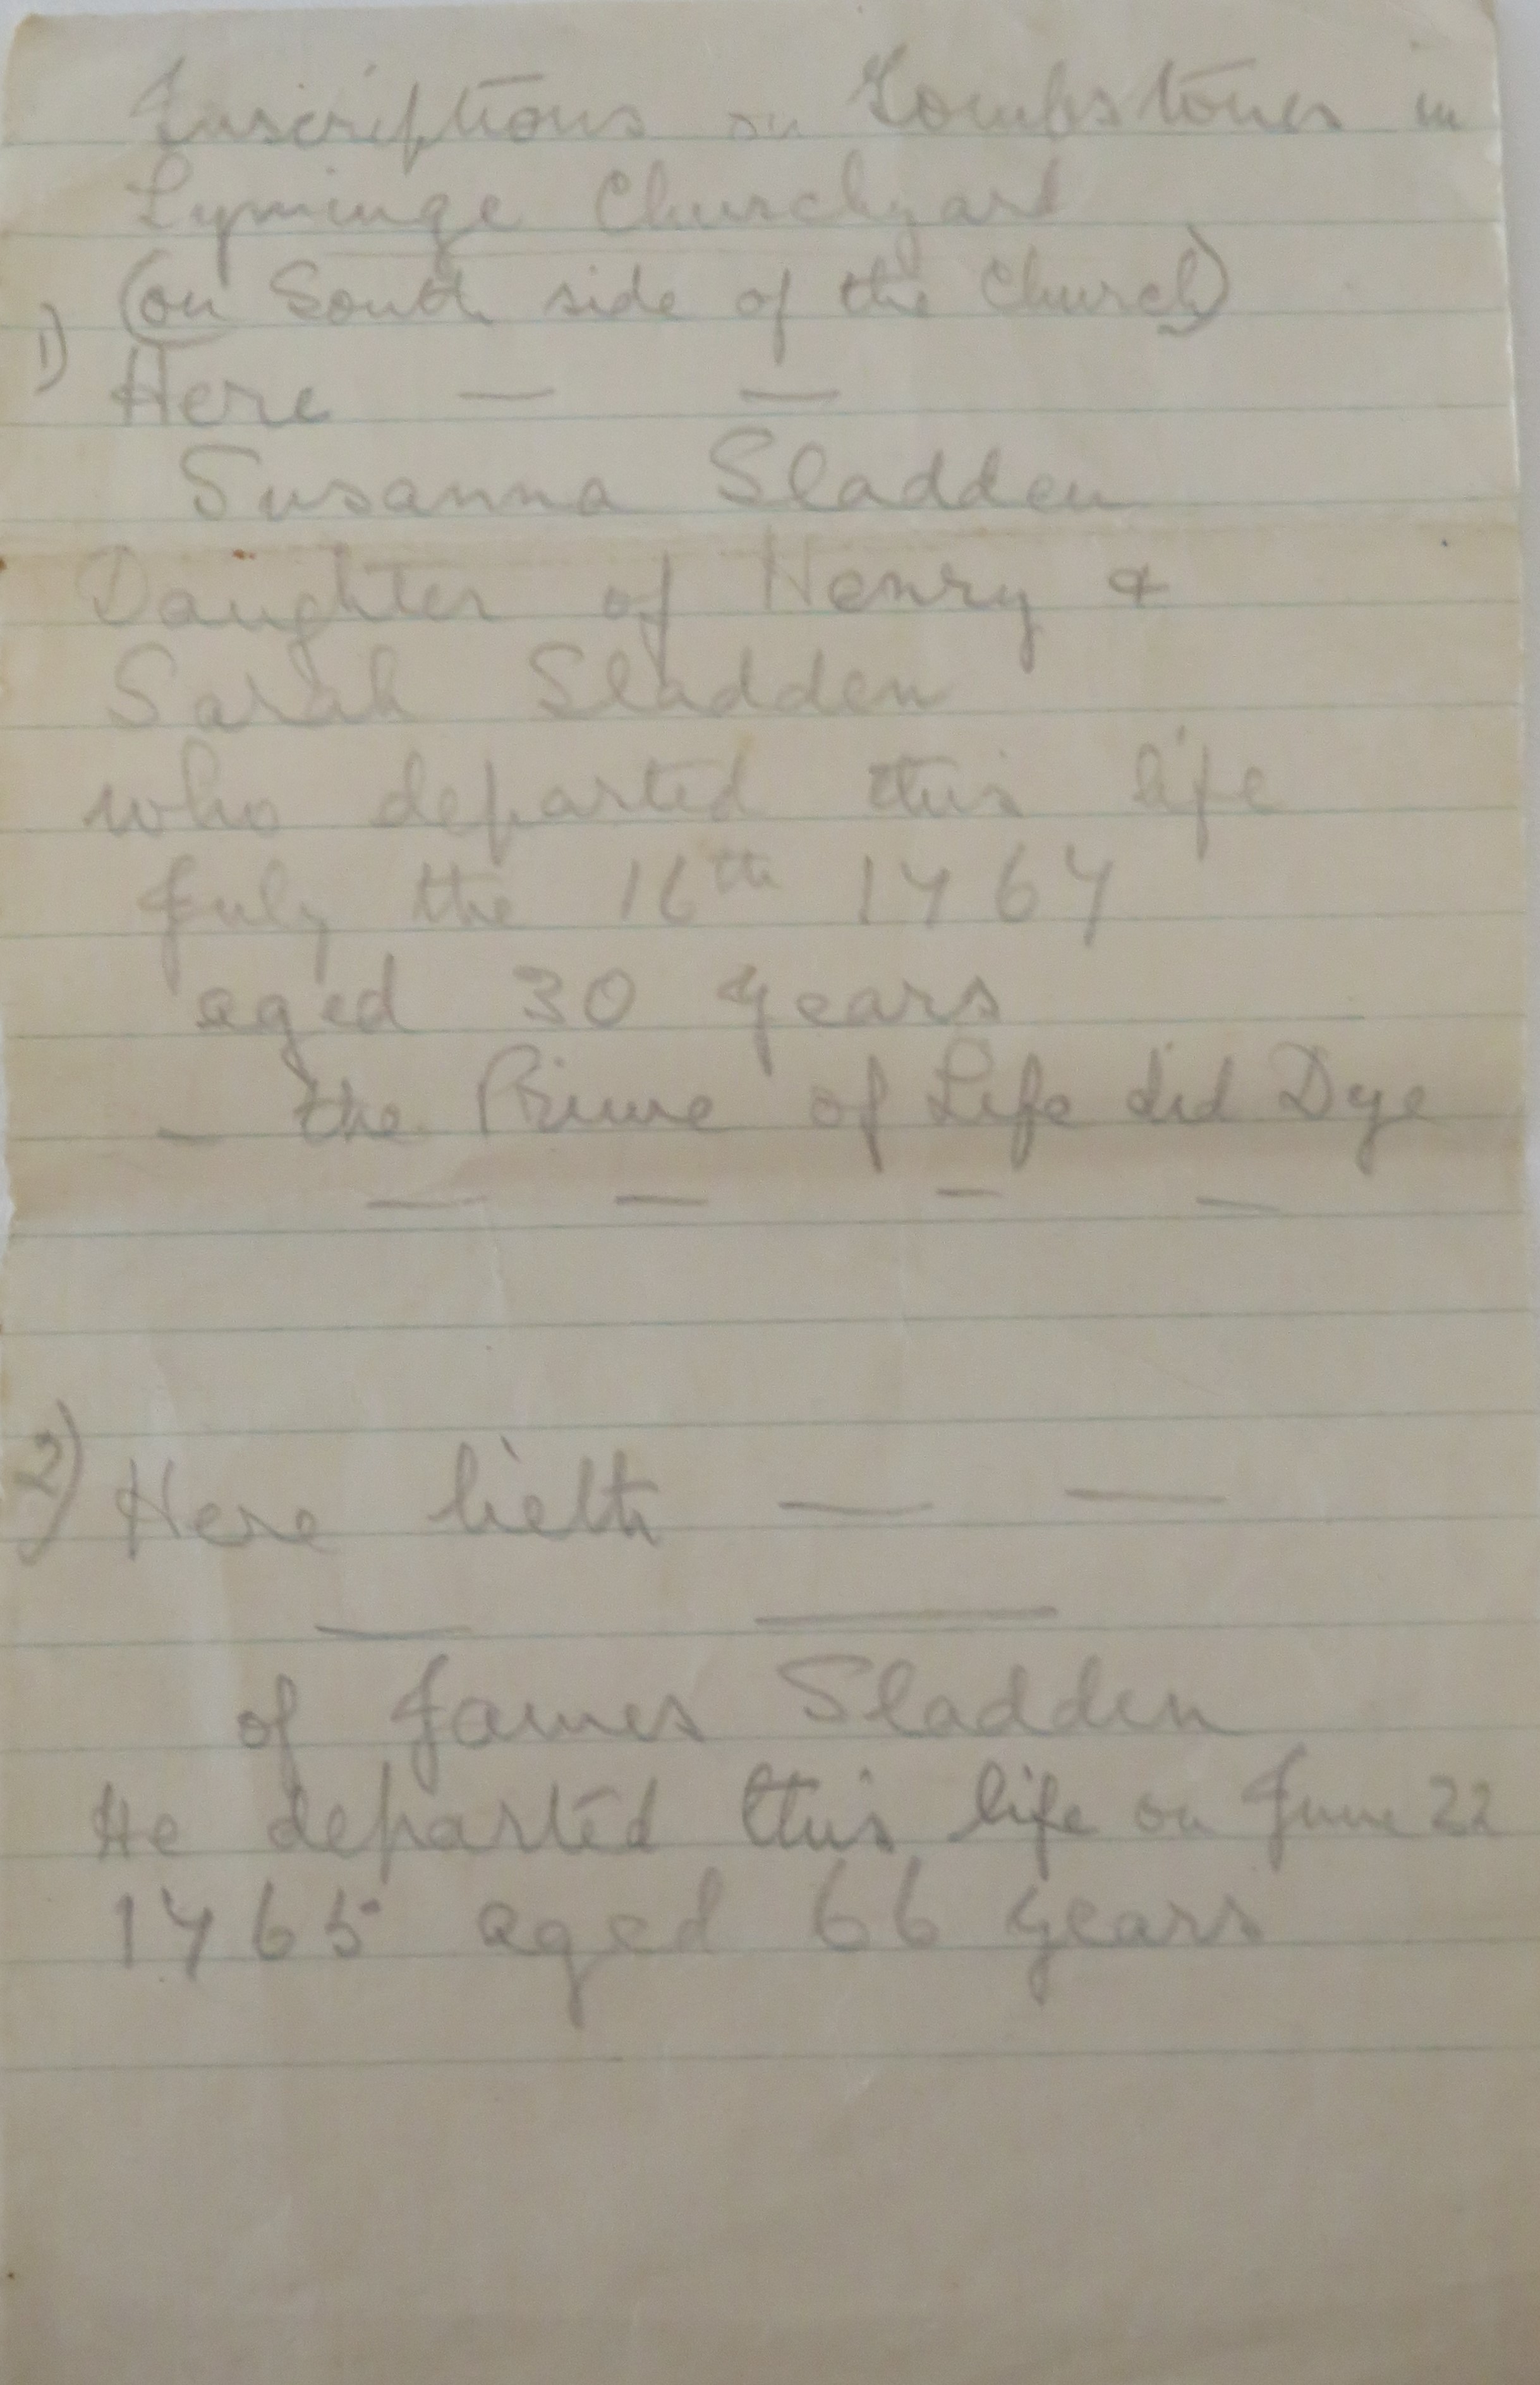 Inscriptions on Tombstones in
Lyminge Churchyard
(on South side of the Church)
1) Here — —
Susanna Sladden
Daughter of Henry &
Sarah Sladden
who departed this life
July the 16th 1767
aged 30 years
— the Prime of Life did Dye
— — — —
2) Here lieth — —
— —
of James Sladden
He departed this life on June 22
1765 aged 66 years